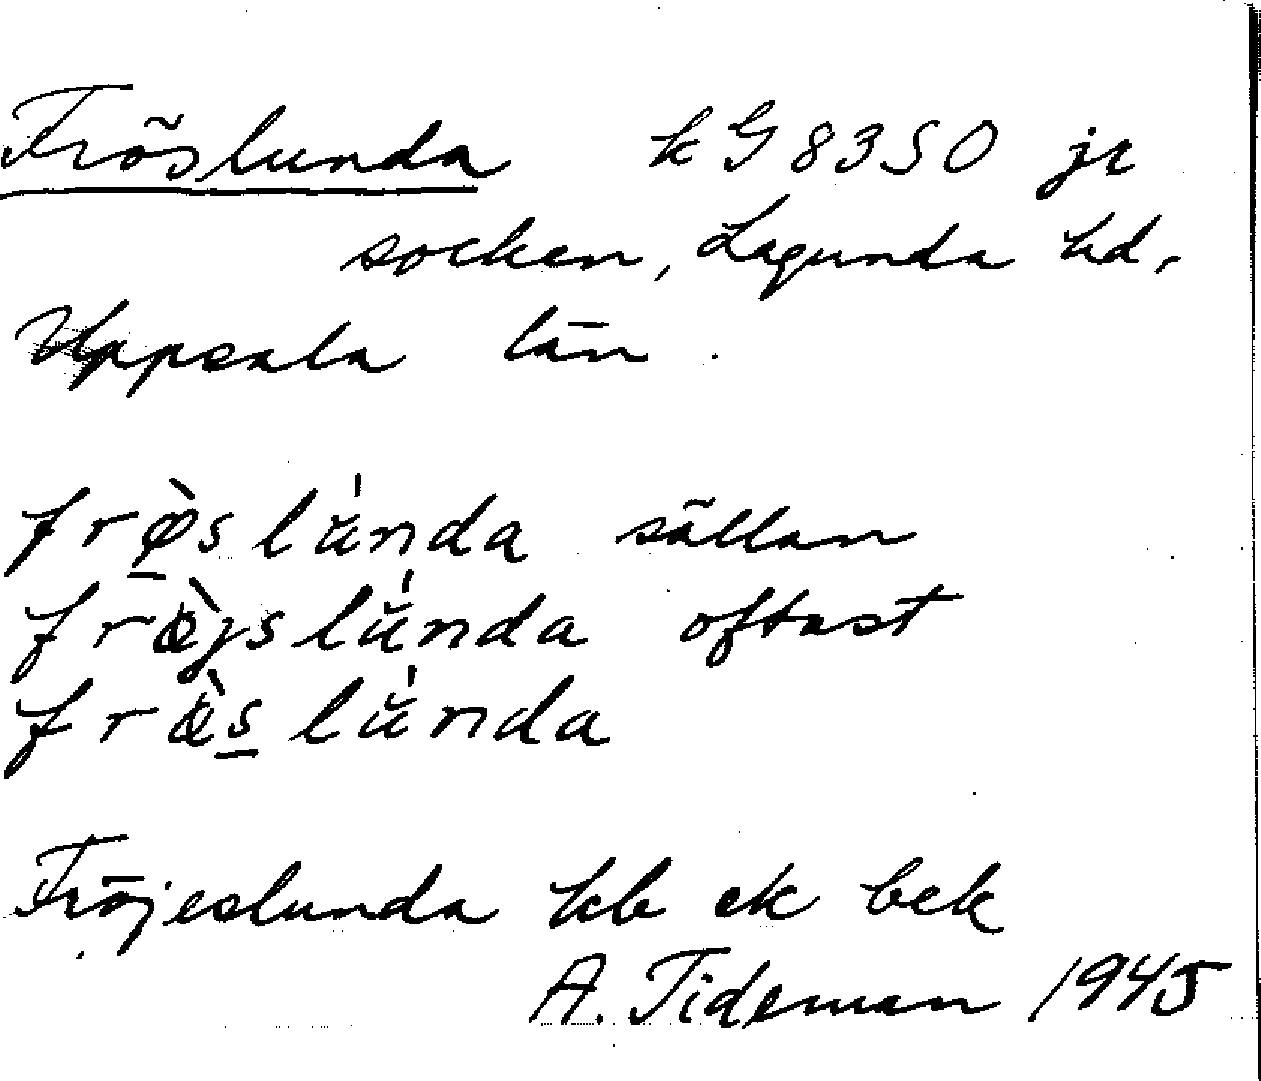 Fröslunda kG8350 jr
socken, Lagunda hd,
Uppsala län.
frø̀slu̍nda sällan
fròjslu̍nda oftast
frœ̀slu̍nda
Fröjeslunda kb ek bek
A. Tideman 1945